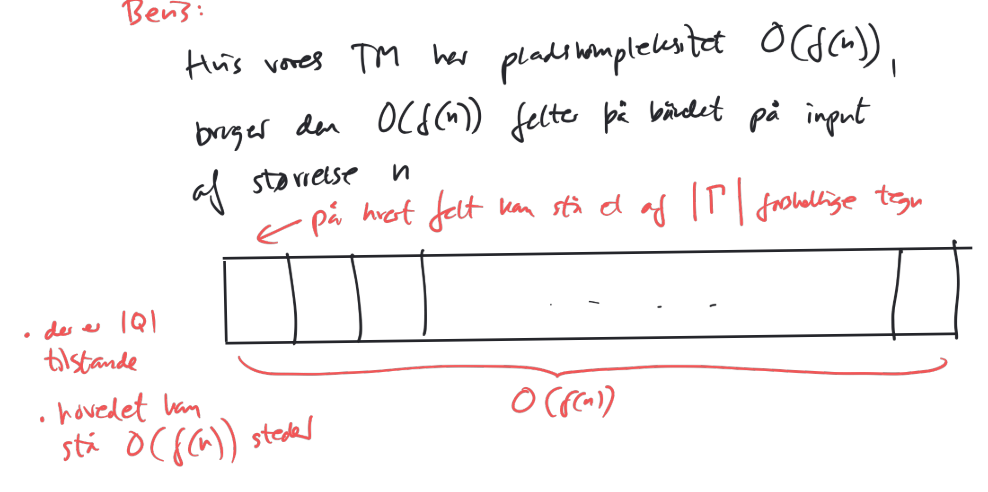 Bevis:
Hvis vores TM har pladskompleksitet O(f(n)),
bruger den O(f(n)) felter på båndet på input
af størrelse n
på hvert felt kan stå et af |Γ| forskellige tegn
• der er |Q|
tilstande
O(f(n))
• hovedet kan
stå O(f(n)) steder